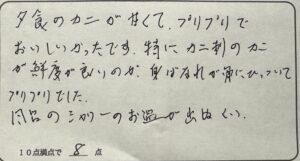 夕食のカニが甘くて、プリプリで
おいしかったです。特にカニ刺のカニ
が鮮度が良いのか、身ばなれが
プリプリでした。
風呂のシャワーのお湯が出ぬくい。
10点満点で 8 点